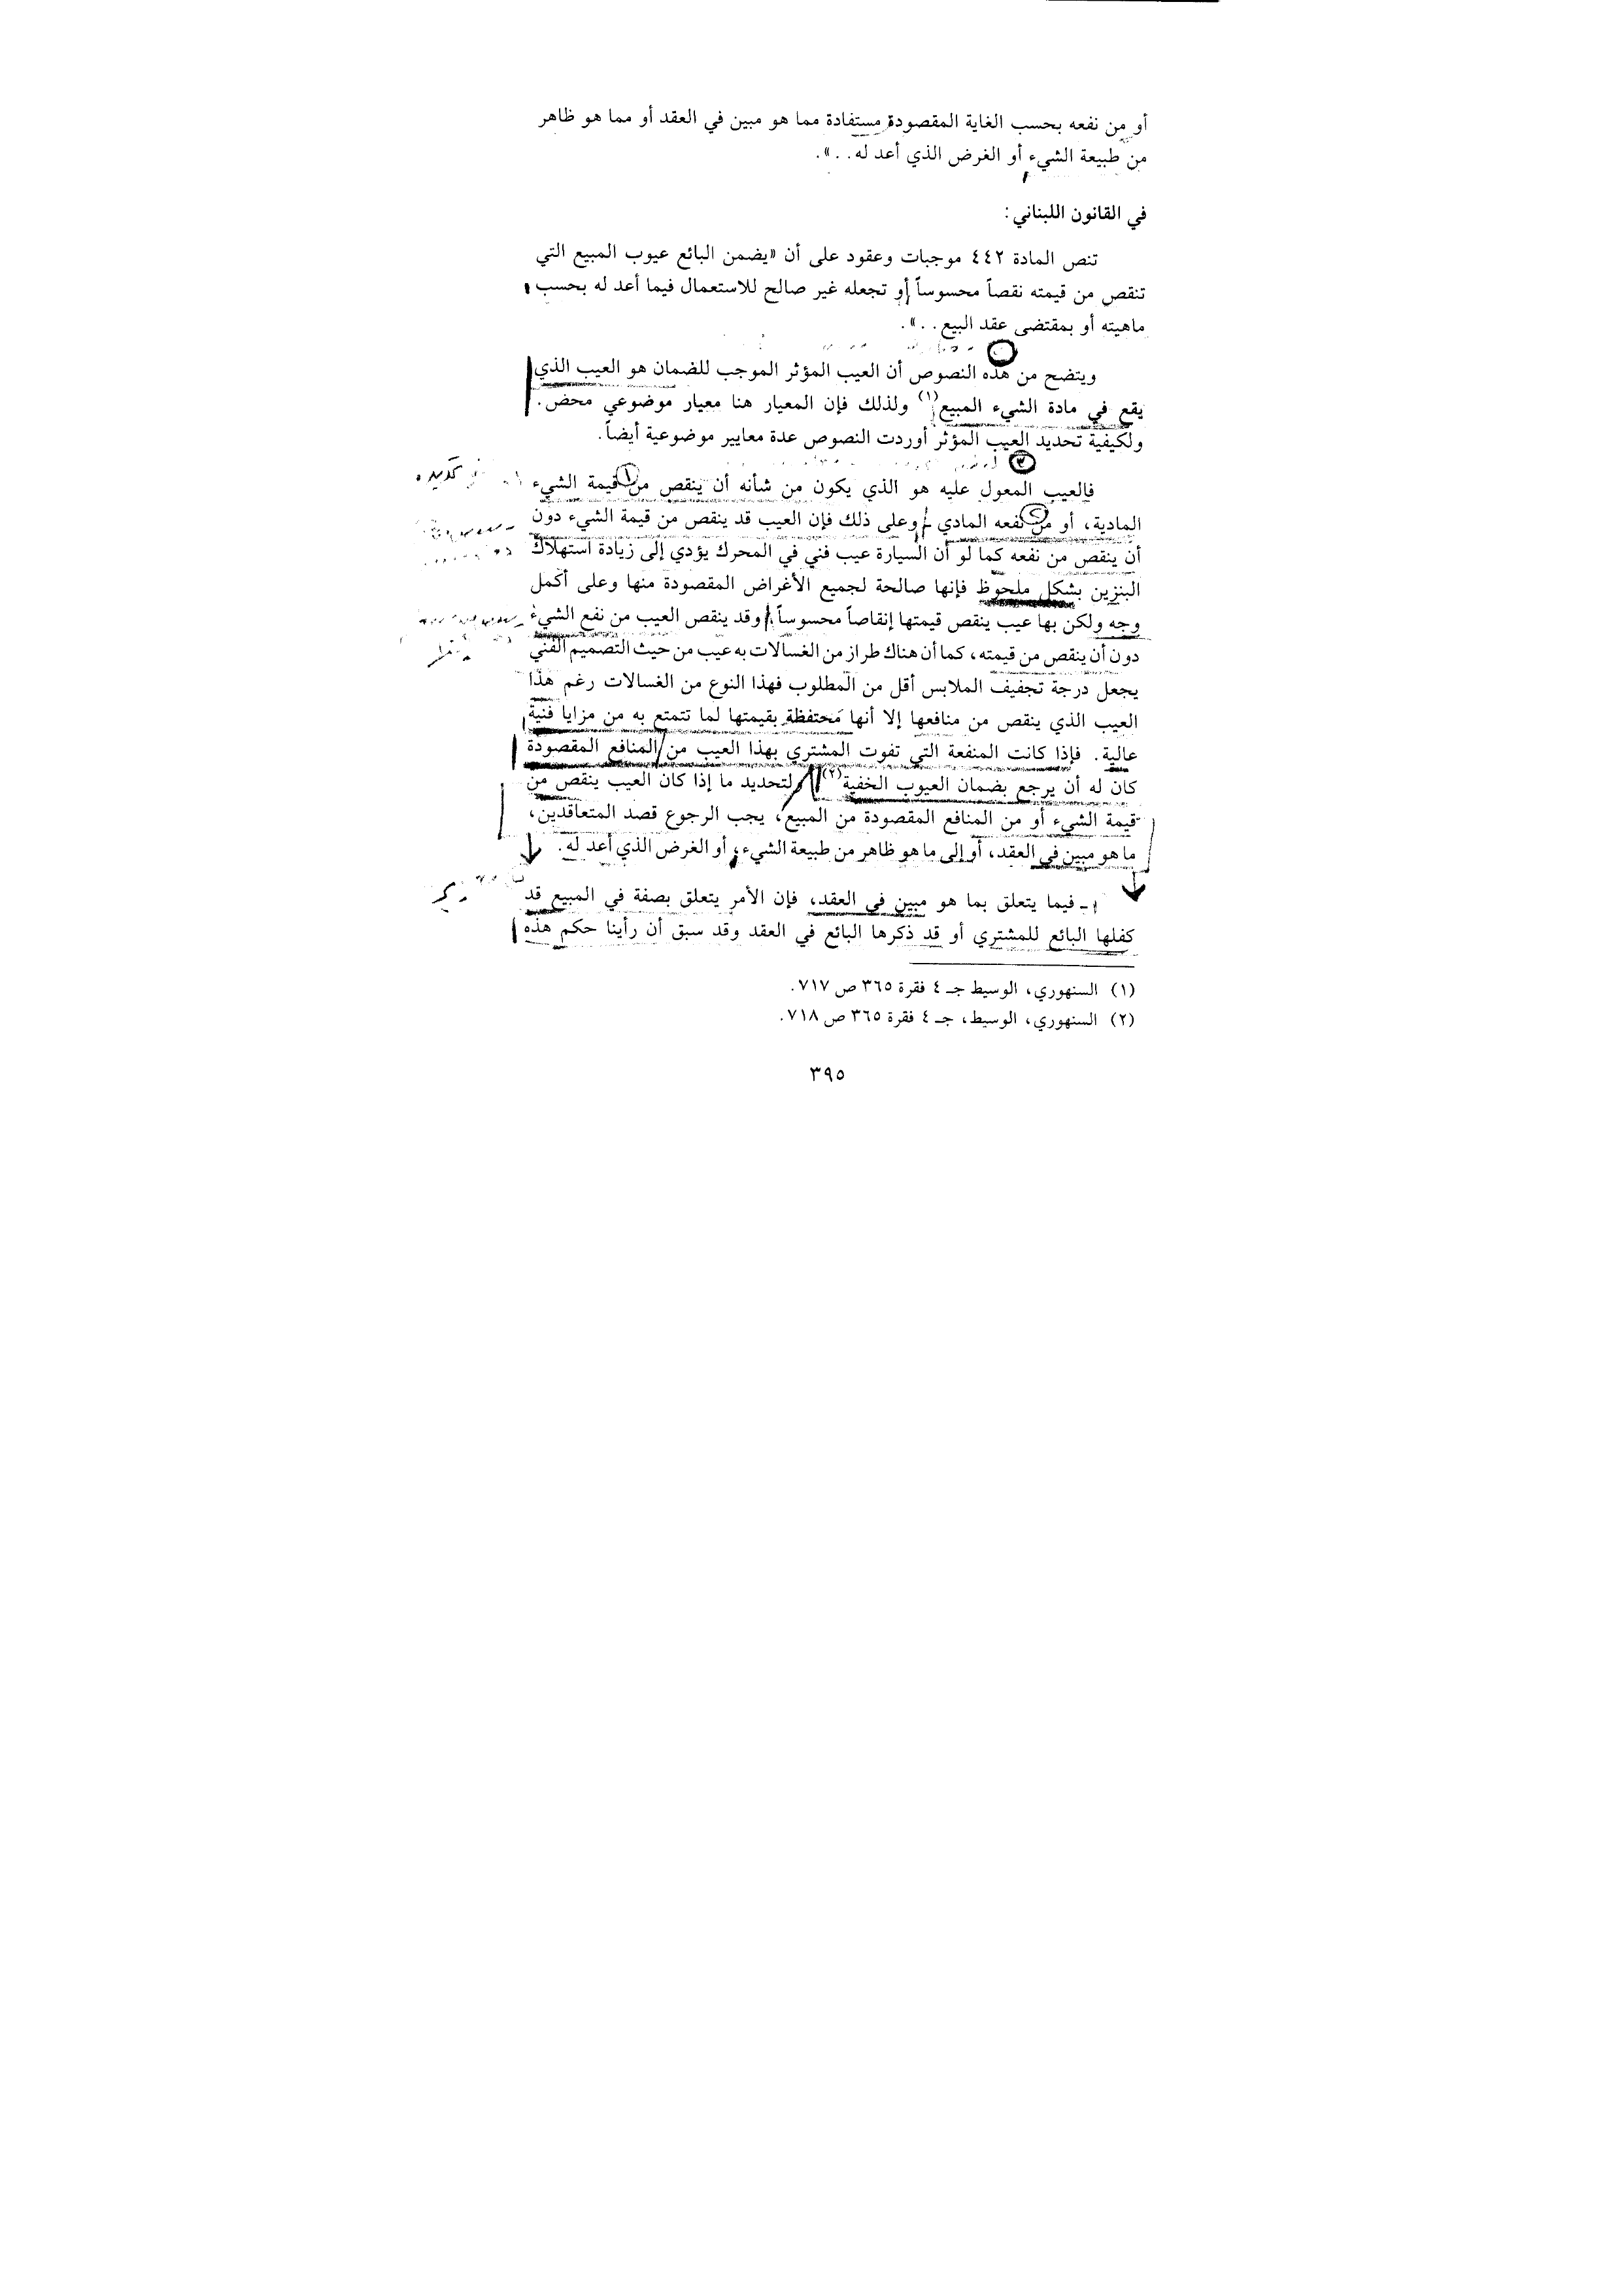 أو من نفعه بحسب الغاية المقصودة مستفادة مما هو مبين في العقد أو مما هو ظاهر
من طبيعة الشيء أو الغرض الذي أعد له. . ».
في القانون اللبناني:
تنص المادة ٤٤٢ موجبات وعقود على أن «يضمن البائع عيوب المبيع التي
تنقص من قيمته نقصاً محسوساً أو تجعله غير صالح للاستعمال فيما أعد له بحسب
ماهيته أو بمقتضى عقد البيع. . ».
ويتضح من هذه النصوص أن العيب المؤثر الموجب للضمان هو العيب الذي
يقع في مادة الشيء المبيع(١) ولذلك فإن المعيار هنا معيار موضوعي محض.
ولكيفية تحديد العيب المؤثر أوردت النصوص عدة معايير موضوعية أيضاً.
فالعيب المعول عليه هو الذي يكون من شأنه أن ينقص من قيمة الشيء
المادية، أو من نفعه المادي - وعلى ذلك فإن العيب قد ينقص من قيمة الشيء دون
أن ينقص من نفعه كما لو أن السيارة عيب فني في المحرك يؤدي إلى زيادة استهلاك
البنزين بشكل ملحوظ فإنها صالحة لجميع الأغراض المقصودة منها وعلى أكمل
وجه ولكن بها عيب ينقص قيمتها إنقاصاً محسوساً وقد ينقص العيب من نفع الشيء
دون أن ينقص من قيمته، كما أن هناك طراز من الغسالات به عيب من حيث التصميم الفني
يجعل درجة تجفيف الملابس أقل من المطلوب فهذا النوع من الغسالات رغم هذا
العيب الذي ينقص من منافعها إلا أنها محتفظة بقيمتها لما تتمتع به من مزايا فنية
عالية. فإذا كانت المنفعة التي تفوت المشتري بهذا العيب من المنافع المقصودة
كان له أن يرجع بضمان العيوب الخفية(٢) ولتحديد ما إذا كان العيب ينقص من
قيمة الشيء أو من المنافع المقصودة من المبيع، يجب الرجوع قصد المتعاقدين،
ما هو مبين في العقد، أو إلى ما هو ظاهر من طبيعة الشيء، أو الغرض الذي أعد له.
١ـ فيما يتعلق بما هو مبين في العقد، فإن الأمر يتعلق بصفة في المبيع قد
كفلها البائع للمشتري أو قد ذكرها البائع في العقد وقد سبق أن رأينا حكم هذه
(١) السنهوري، الوسيط جـ ٤ فقرة ٣٦٥ ص ٧١٧.
(٢) السنهوري، الوسيط، جـ ٤ فقرة ٣٦٥ ص ٧١٨.
٣٩٥